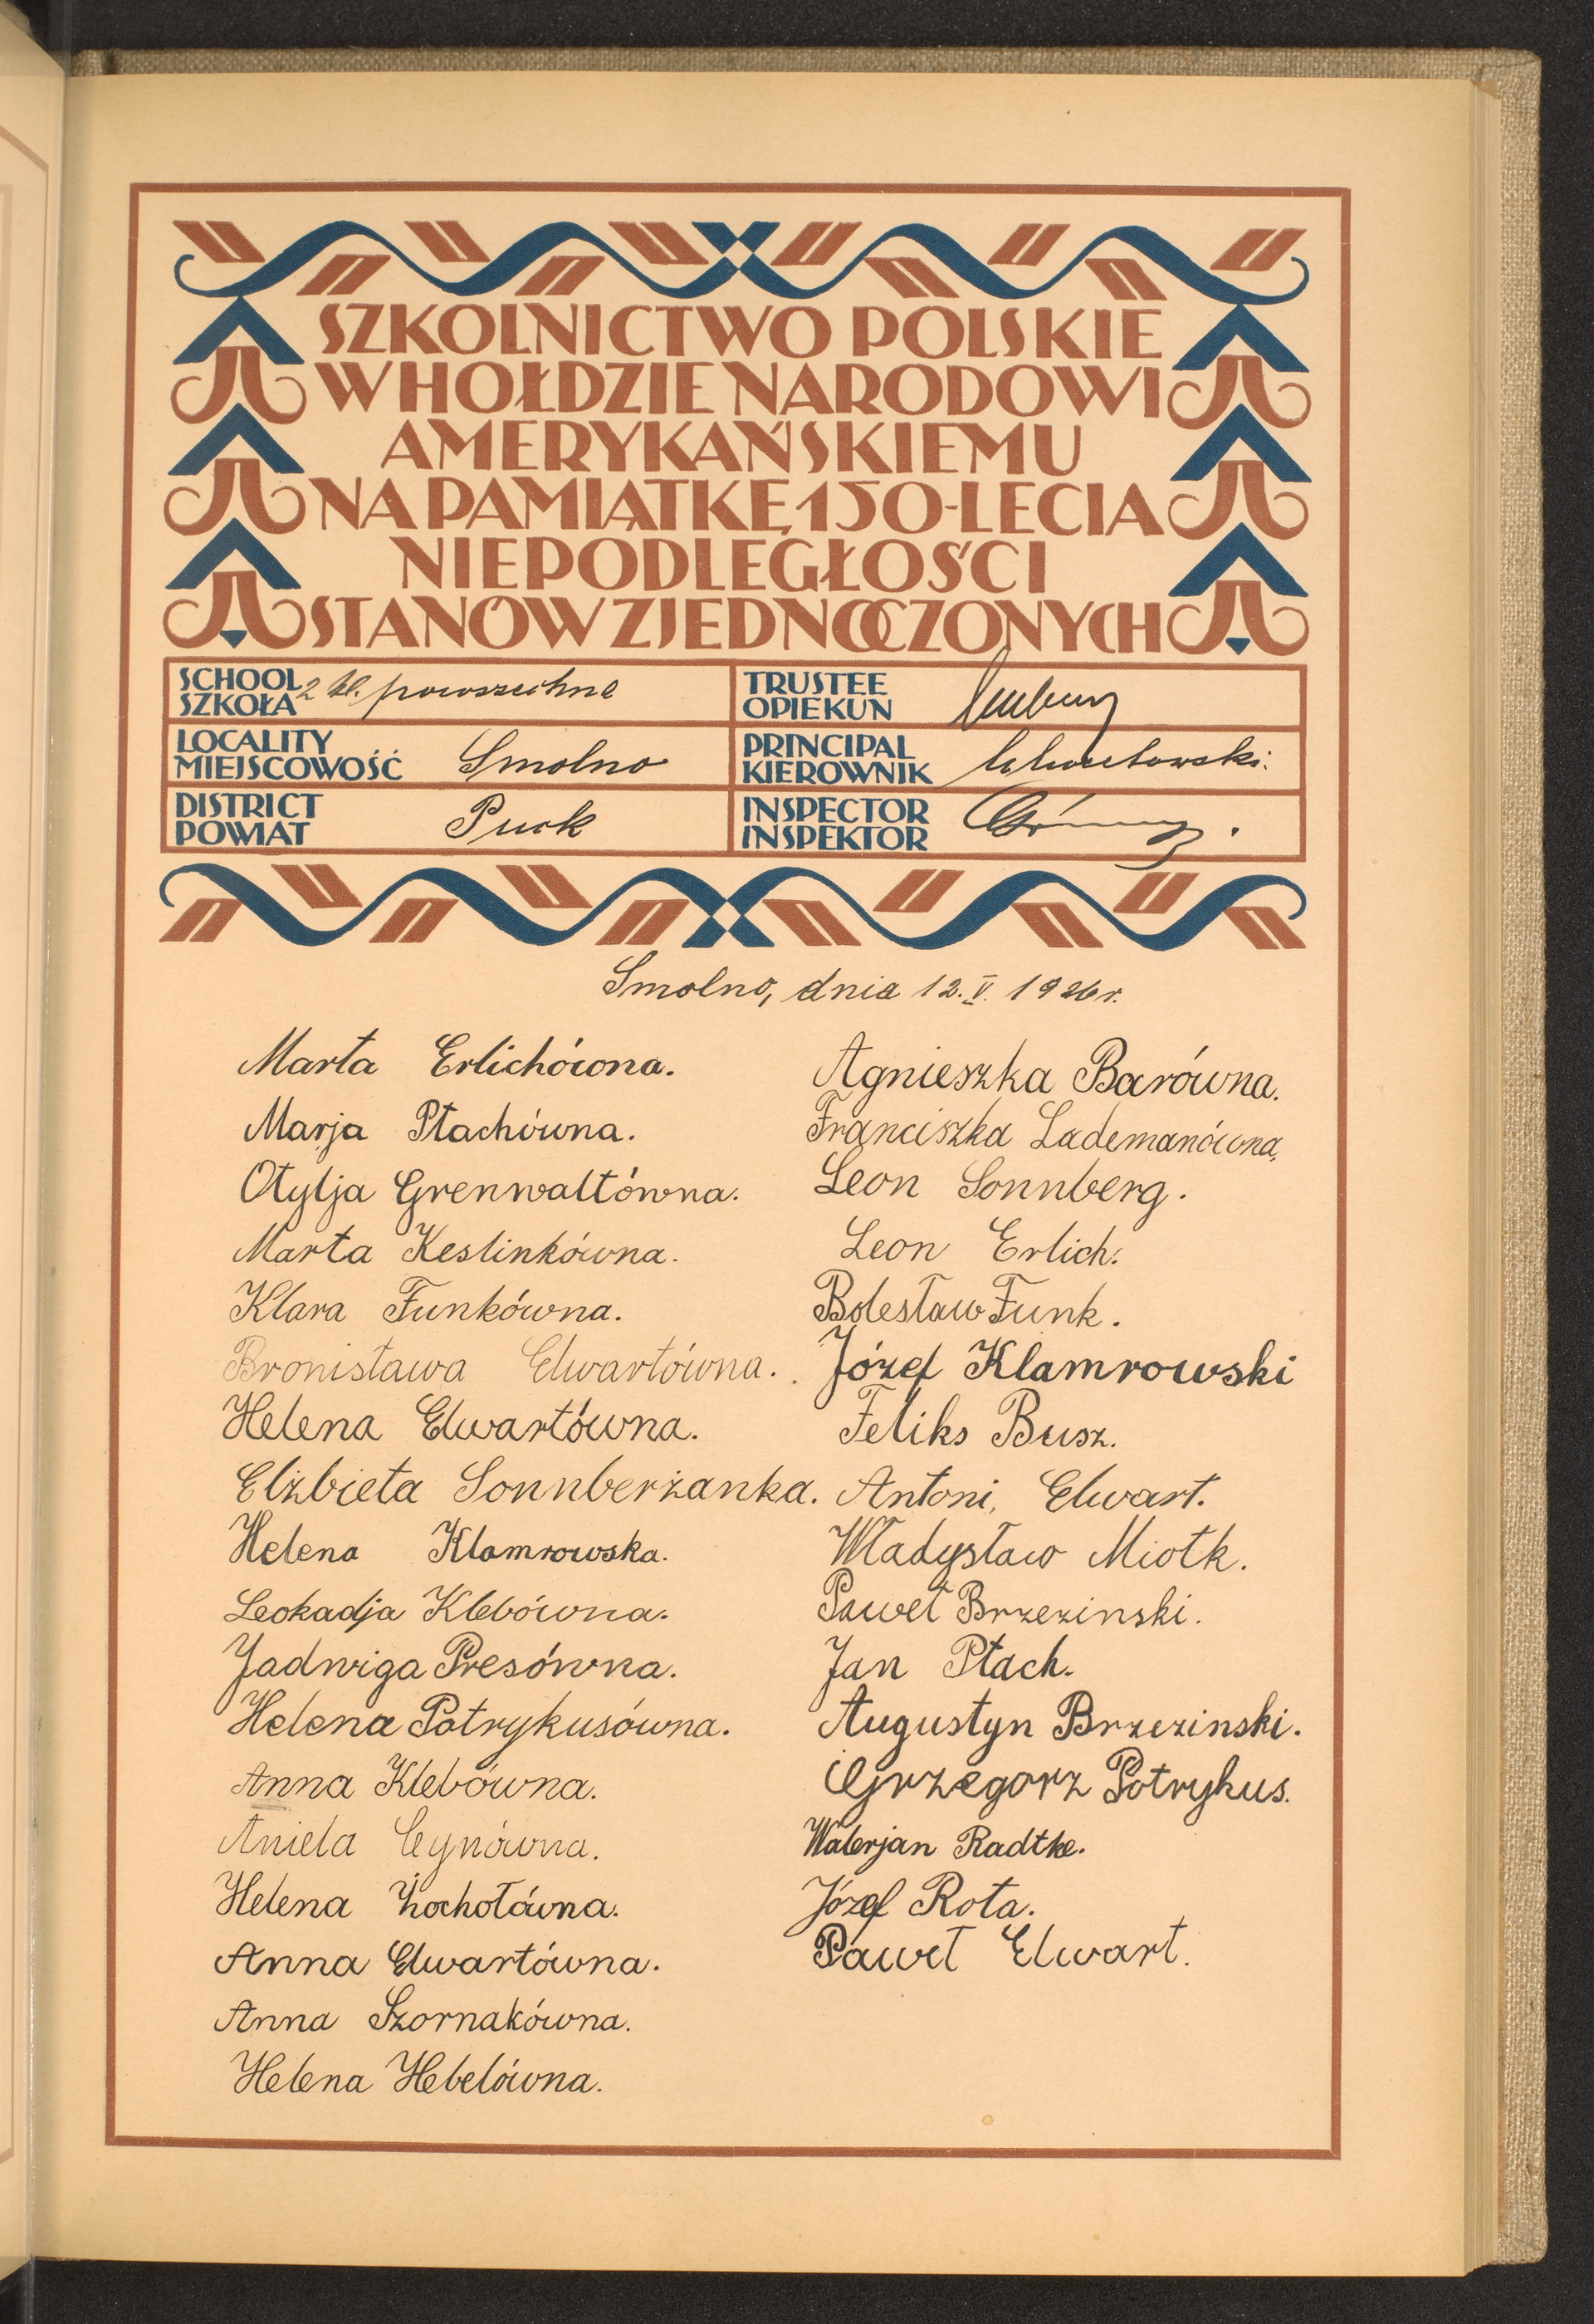 SZKOLNICTWO POLSKIE
W HOŁDZIE NARODOWI
AMERYKAŃSKIEMU
NA PAMIĄTKĘ 150-LECIA
NIEPODLEGŁOŚCI
STANÓW ZJEDNOCZONYCH
SCHOOL
SZKOŁA 2 kl. powszechne
LOCALITY
MIEJSCOWOŚĆ Smolno
DISTRICT
POWIAT Puck
TRUSTEE
OPIEKUN
PRINCIPAL
KIEROWNIK
INSPECTOR
INSPEKTOR
Smolno, dnia 12.V. 1926 r.
Marta Erlichówna.
Marja Ptachówna.
Otylja Grenwaltówna.
Marta Keslinkówna.
Klara Funkówna.
Bronisława Elwartówna.
Helena Elwartówna.
Elżbieta Sonnberżanka.
Helena Klamrowska.
Leokadja Klebówna.
Jadwiga Presówna.
Helena Potrykusówna.
Anna Klebówna.
Aniela Cynówna.
Helena Żochołówna.
Anna Elwartówna.
Anna Szornakówna.
Helena Hebelówna.
Agnieszka Barówna.
Franciszka Lademanówna,
Leon Sonnberg.
Leon Erlich.
Bolesław Funk.
Józef Klamrowski
Feliks Busz.
Antoni, Elwart.
Władysław Miotk.
Paweł Brzezinski.
Jan Ptach.
Augustyn Brzezinski.
Grzegorz Potrykus.
Walerjan Radtke.
Józef Rota.
Paweł Elwart.